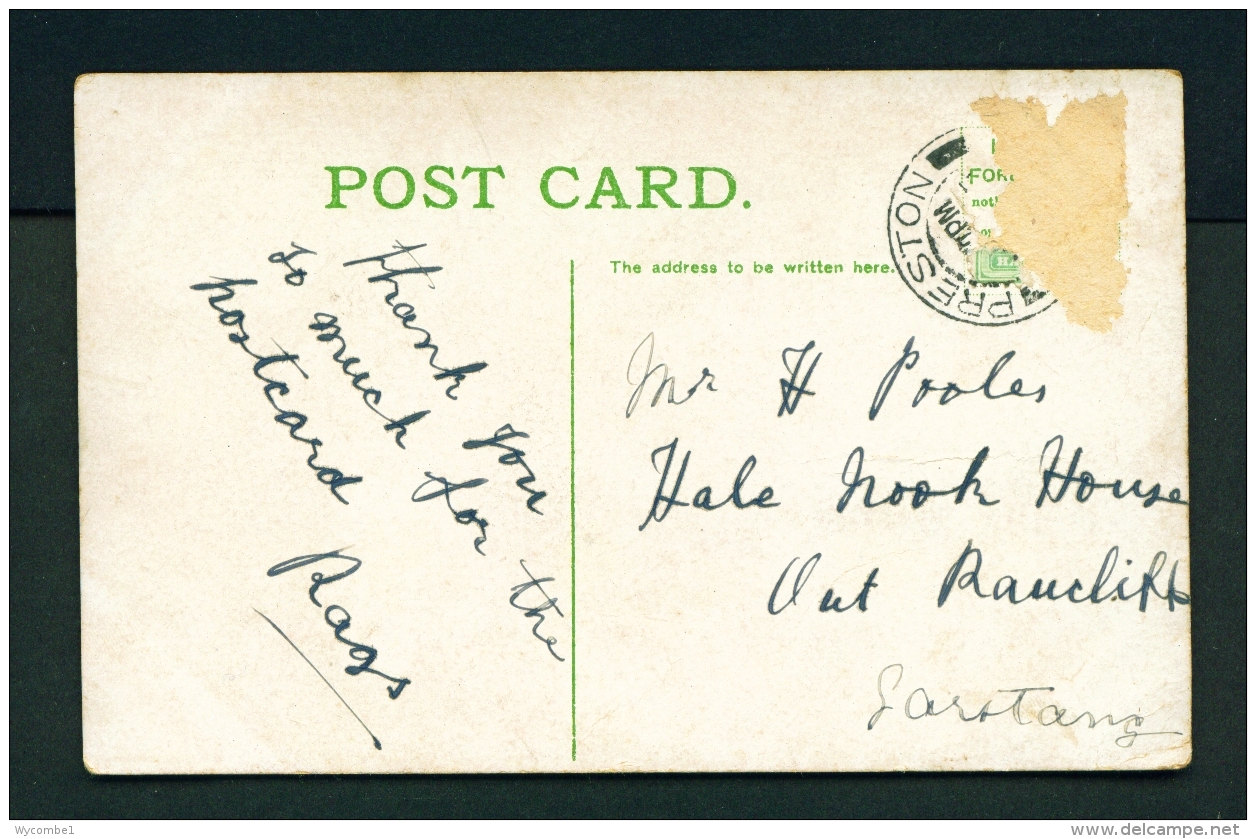 POST CARD.
The address to be written here.
PRESTON
PM
FOR
not
Thank you
so much for the
postcard
Rags
Mr H Pooles
Hale Nook House
Out Raucliff
Garstang
Wycombe1
www.delcampe.net